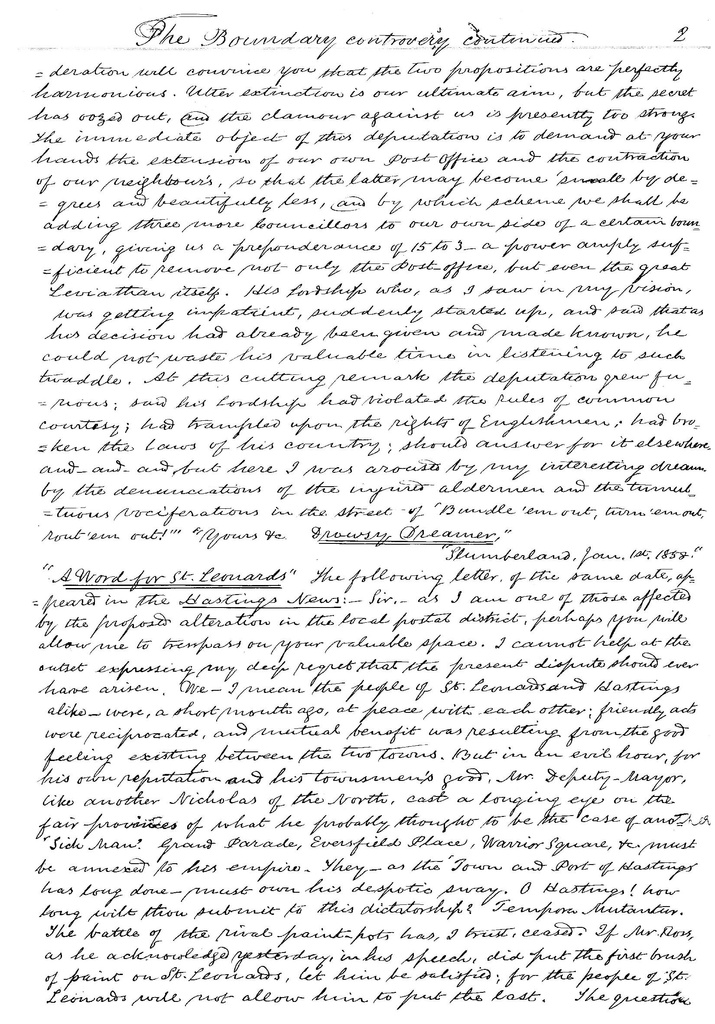 The Boundary controversy continued. 2
=deration will convince you that the two propositions are perfectly
harmonious. Utter extinction is our ultimate aim, but the secret
has oozed out, and the clamour against us is presently too strong.
The immediate object of this deputation is to demand at your
hands the extension of our own Post Office and the contraction
of our neighbour's, so that the latter may become 'small by de-
=grees and beautifully less, and by which scheme we shall be
adding three more Councillors to our own side of a certain boun-
=dary, giving us a preponderance of 15 to 3 – a power amply suf-
=ficient to remove not only the Post office, but even the great
Leviathan itself. His Lordship who, as I saw in my vision,
was getting impatient, suddenly started up, and said that as
his decision had already been given and made known, he
could not waste his valuable time in listening to such
twaddle. At this cutting remark the deputation grew fu-
=rious; said his Lordship had violated the rules of common
courtesy; had trampled upon the rights of Englishmen; had bro-
=ken the laws of his country; should answer for it elsewhere,
and – and – and, but here I was aroused by my interesting dream
by the denunciations of the injured aldermen and the tumul-
=tuous vociferations in the street of "Bundle 'em out, turn 'em out,
rout 'em out!"" "Yours &c Drowsy Dreamer,"
"Slumberland, Jan. 1st, 1858."
"A Word for St. Leonards" The following letter, of the same date, ap-
=peared in the Hastings News: – Sir, – as I am one of those affected
by the proposed alteration in the local postal district, perhaps you will
allow me to trespass on your valuable space. I cannot help at the
outset expressing my deep regret that the present dispute should ever
have arisen. We – I mean the people of St. Leonards and Hastings
alike – were, a short month ago, at peace with each other; friendly acts
were reciprocated, and mutual benefit was resulting from the good
feeling existing between the two towns. But in an evil hour, for
his own reputation and his townsmen's good, Mr. Deputy-Mayor,
like another Nicholas of the North, cast a longing eye on the
fair provinces of what he probably thought to be the case of another
"Sick Man". Grand Parade, Eversfield Place, Warrior Square, &c. must
be annexed to his empire. They – as the Town and Port of Hastings
has long done – must own his despotic sway. O Hastings! how
long wilt thou submit to this dictatorship? Tempora Mutantur.
The battle of the rival paint-pots has, I trust, ceased. If Mr. Ross,
as he acknowledged yesterday, in his speech, did put the first brush
of paint on St. Leonards, let him be satisfied; for the people of St.
Leonards will not allow him to put the last. The question